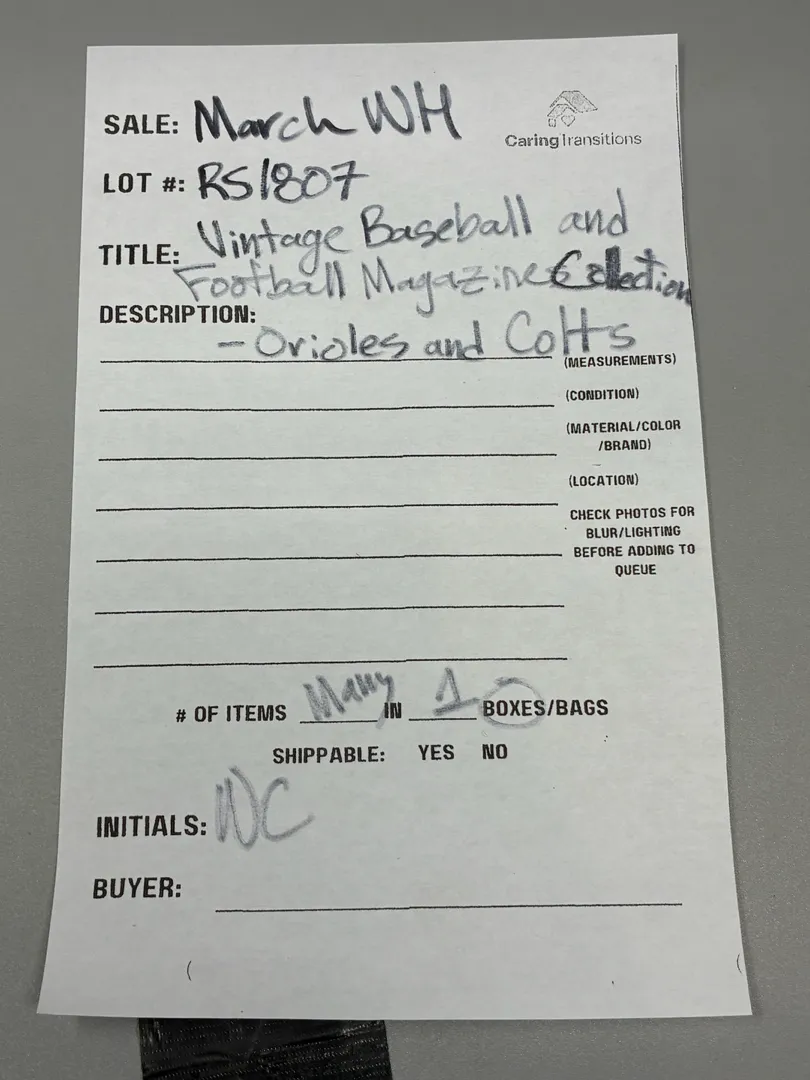 SALE: March WH
CaringTransitions
LOT #: RS1807
TITLE: Vintage Baseball and
Football Magazine Collection
DESCRIPTION:
- Orioles and Colts
(MEASUREMENTS)
(CONDITION)
(MATERIAL/COLOR
/BRAND)
(LOCATION)
CHECK PHOTOS FOR
BLUR/LIGHTING
BEFORE ADDING TO
QUEUE
# OF ITEMS Many IN 1 BOXES/BAGS
SHIPPABLE: YES NO
INITIALS: WC
BUYER: